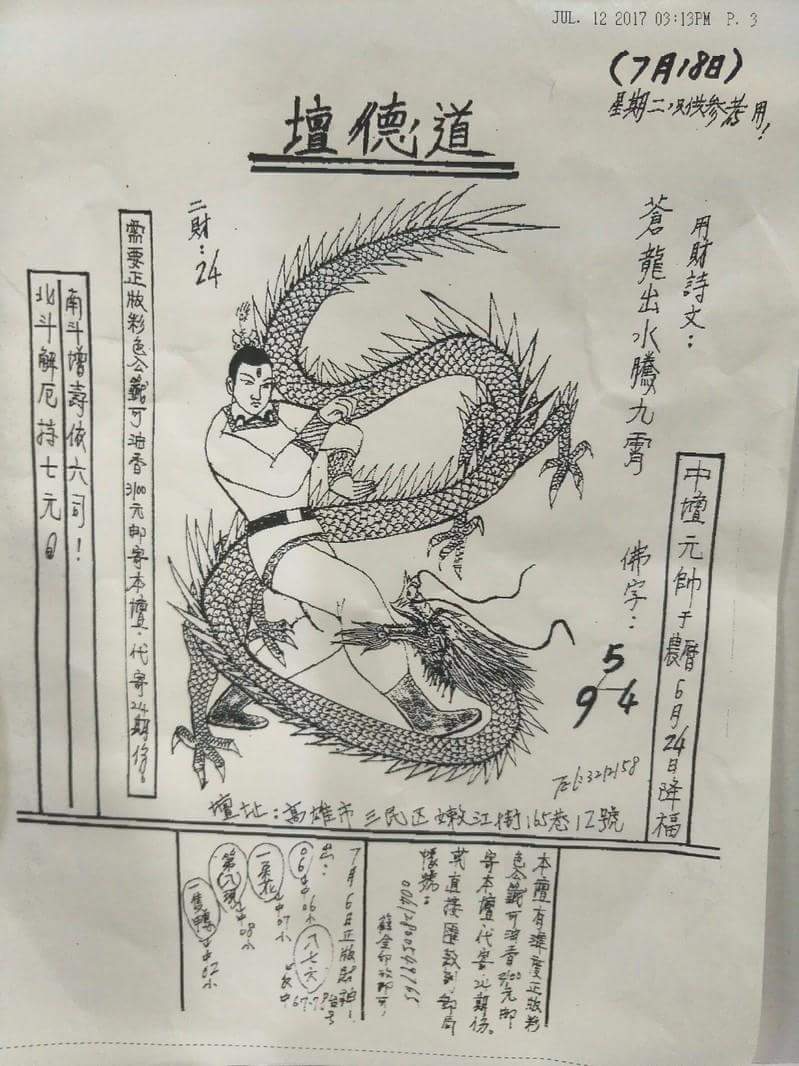 JUL. 12 2017 03:13PM P. 3
(7月18日)
星期二只供參考用!
道德壇
用財詩文:
蒼龍出水騰九霄
佛字:
5
9 4
中壇元帥于農曆6月24日降福
二財:24
需要正版彩色公籤可油香3100元郵寄本壇.代寄24期份。
南斗增壽依六司!
北斗解厄持七元
Tel:
壇址:高雄市三民區嫩江街165巷12號
本壇有
正版彩
色公籤可油香3100元郵
寄本壇.代寄24期份。
或直接匯款到郵局
帳號:
7月6日正版
出:
06中06小
八七六
一朵花中07小
中08小
一隻鴨中02小